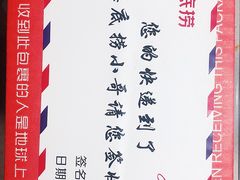 底捞
您的快递到了
底捞小哥请您签收
签名
日期
收到此包裹的人是地球上
N RECEIVING THIS PACKA